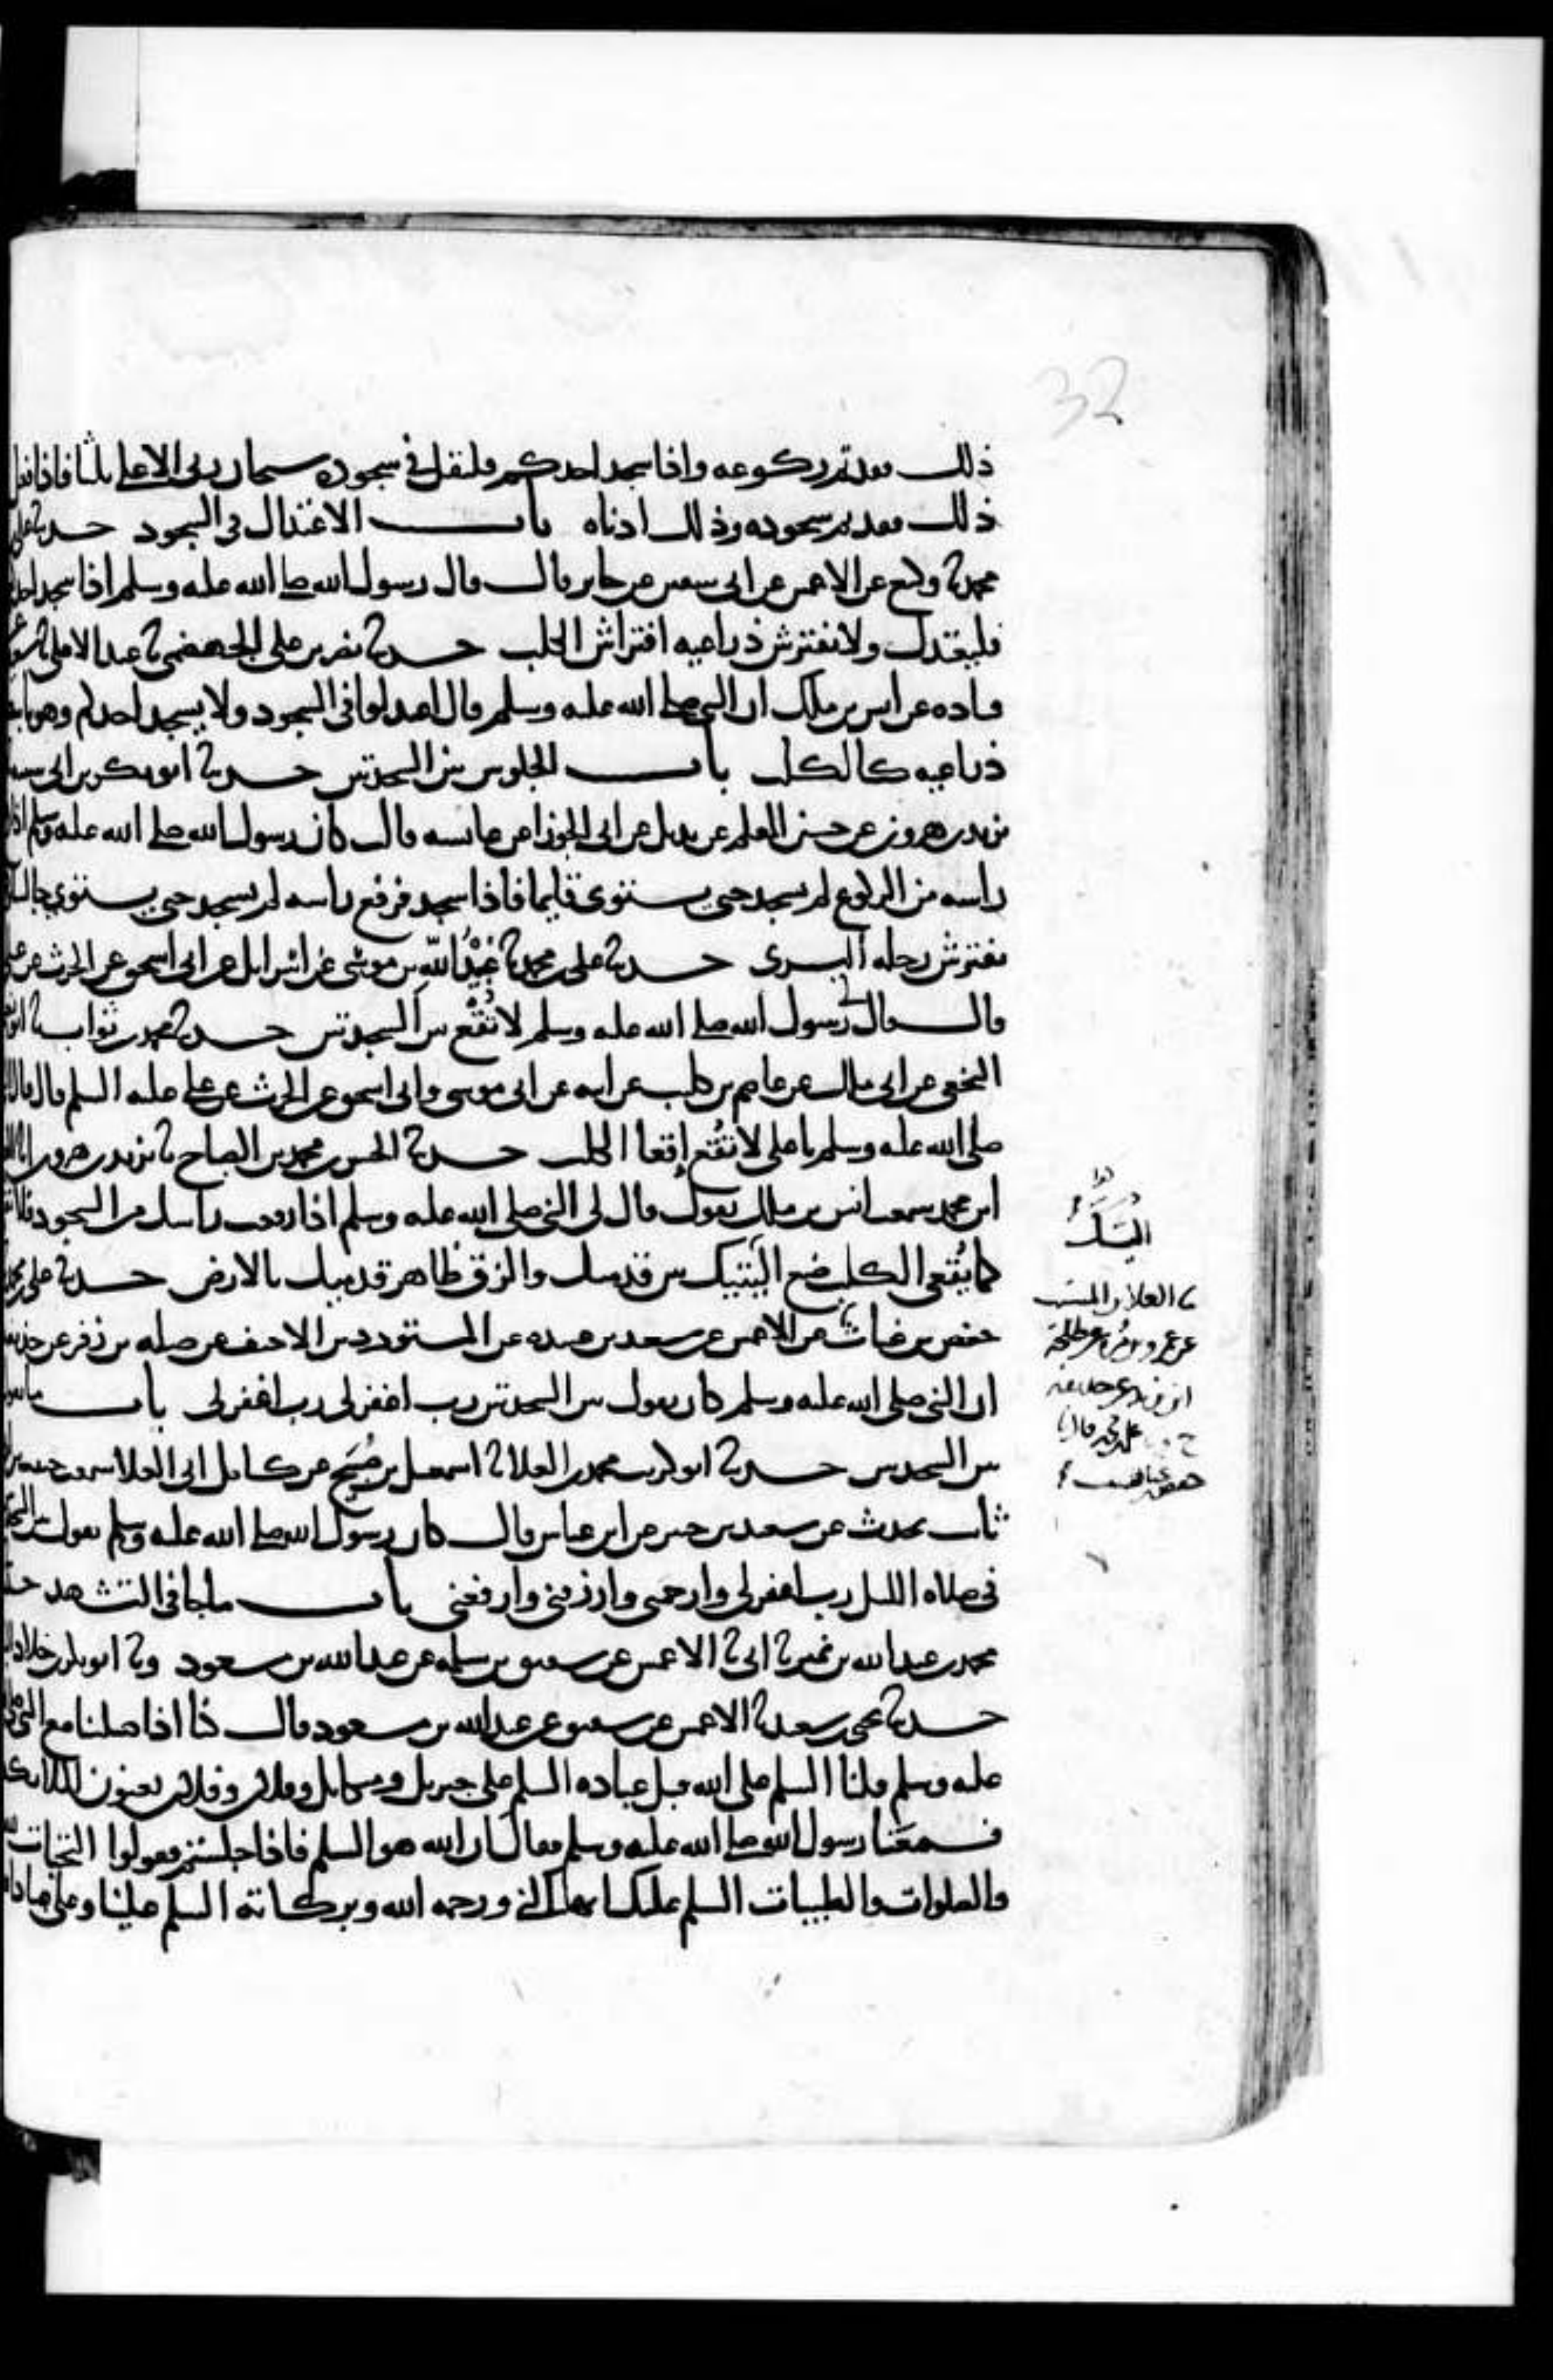 32
ذلك فقد تم ركوعه واذا سجد احدكم فليقل في سجوده سبحان ربي الاعلى ثلثا فاذا فعل
ذلك فقد تم سجوده وذلك ادناه باب الاعتدال في السجود حدثنا علي
محمد ثنا وكيع عن الاعمش عن ابي سفين عن جابر قال قال رسول الله صلى الله عليه وسلم اذا سجد احد
فليعتدل ولا يفترش ذراعيه افتراش الكلب حدثنا نصر بن علي الجهضمي ثنا عبد الاعلى ثنا
قتاده عن انس بن ملك ان النبي صلى الله عليه وسلم قال اعتدلوا في السجود ولا يسجد احدكم وهو باسط
ذراعيه كالكلب باب الجلوس بين السجدتين حدثنا ابو بكر بن ابي شيبه
يزيد بن هرون عن حسين المعلم عن بديل عن ابي الجوزا عن عائشه قالت كان رسول الله صلى الله عليه وسلم اذا
راسه من الركوع لم يسجد حتى يستوي قايما فاذا سجد فرفع راسه لم يسجد حتى يستوي جالسا
يفترش رجله اليسرى حدثنا علي بن محمد ثنا عبيد الله بن موسى عن اسرائيل عن ابي اسحق عن الحرث عن علي
قال قال لي رسول الله صلى الله عليه وسلم لا تقع بين السجدتين حدثنا محمد بن ثواب ثنا ابو نعيم
النخعي عن ابي ملك عن عاصم بن كليب عن ابيه عن ابي موسى وابي اسحق عن الحرث عن علي عليه السلم قال قال
صلى الله عليه وسلم يا علي لا تقع إقعا الكلب حدثنا الحسن بن محمد بن الصباح ثنا يزيد بن هرون انا العلا
ابن محمد سمعت انس بن ملك يقول قال لي النبي صلى الله عليه وسلم اذا رفعت راسك من السجود فلا تقع
كما يُقعي الكلب ضع اليتيك بين قدميك والزق ظاهر قدميك بالارض حدثنا علي بن محمد
حفص بن غياث عن الاعمش عن سعد بن عبيده عن المستورد بن الاحنف عن صله بن زفر عن حذيفه
ان النبي صلى الله عليه وسلم كان يقول بين السجدتين رب اغفر لي رب اغفر لي باب ما يقول
بين السجدتين حدثنا ابو كريب محمد بن العلا ثنا اسمعيل بن صُبَيح عن كامل ابي العلا سمعت حبيب بن
ثابت يحدث عن سعيد بن جبير عن ابن عباس قال كان رسول الله صلى الله عليه وسلم يقول بين السجدتين
في صلاه الليل رب اغفر لي وارحمني وارزقني وارفعني باب ما جا في التشهد حدثنا
محمد بن عبد الله بن نمير ثنا ابي ثنا الاعمش عن شقيق بن سلمه عن عبد الله بن مسعود وثنا ابو بكر بن خلاد
حدثنا يحيى بن سعيد ثنا الاعمش عن شقيق عن عبد الله بن مسعود قال كنا اذا صلينا مع النبي صلى
عليه وسلم قلنا السلم على الله قبل عباده السلم على جبريل وميكايل وفلان وفلان يعنون الملائكة
فسمعنا رسول الله صلى الله عليه وسلم فقال ان الله هو السلم فاذا جلستم فقولوا التحيات لله
والصلوات والطيبات السلم عليك ايها النبي ورحمه الله وبركاته السلم علينا وعلى عباد الله
ثنا العلا بن المسيب
عن عمرو بن مُرة عن طلحة
ابن يزيد عن حذيفه